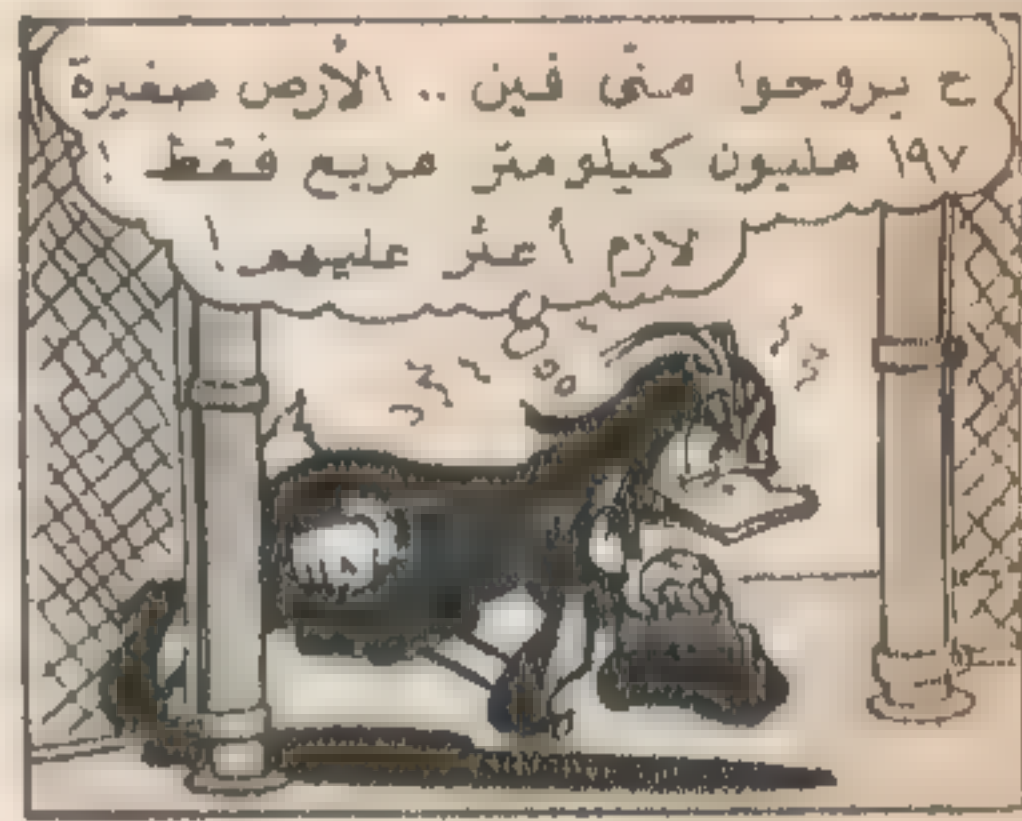 ح يروحوا منى فين .. الأرض صغيرة
١٩٧ مليون كيلو متر مربع فقط !
لازم أعثر عليهم !